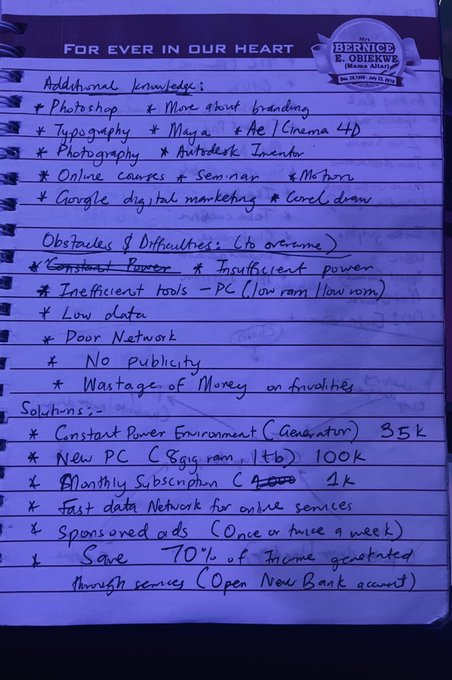 FOR EVER IN OUR HEART
Mrs
BERNICE
E. OBIEKWE
(Mama Altar)
Additional knowledge:
* Photoshop * More about branding
* Typography * Maya * Ae / Cinema 4D
* Photography * Autodesk Inventor
* Online courses * Seminar * Motion
* Google digital marketing * Corel draw
Obstacles & Difficulties: (to overcome)
* Constant Power * Insufficient power
* Inefficient tools - PC (low ram / low rom)
* Low data
* Poor Network
* No publicity
* Wastage of Money on frivolities
Solutions:-
* Constant Power Environment (Generator) 35k
* New PC (8gig ram, 1tb) 100k
* Monthly Subscription ( 1k
* Fast data Network for online services
* Sponsored ads (Once or twice a week)
* Save 70% of Income generated
through services (Open New Bank account)